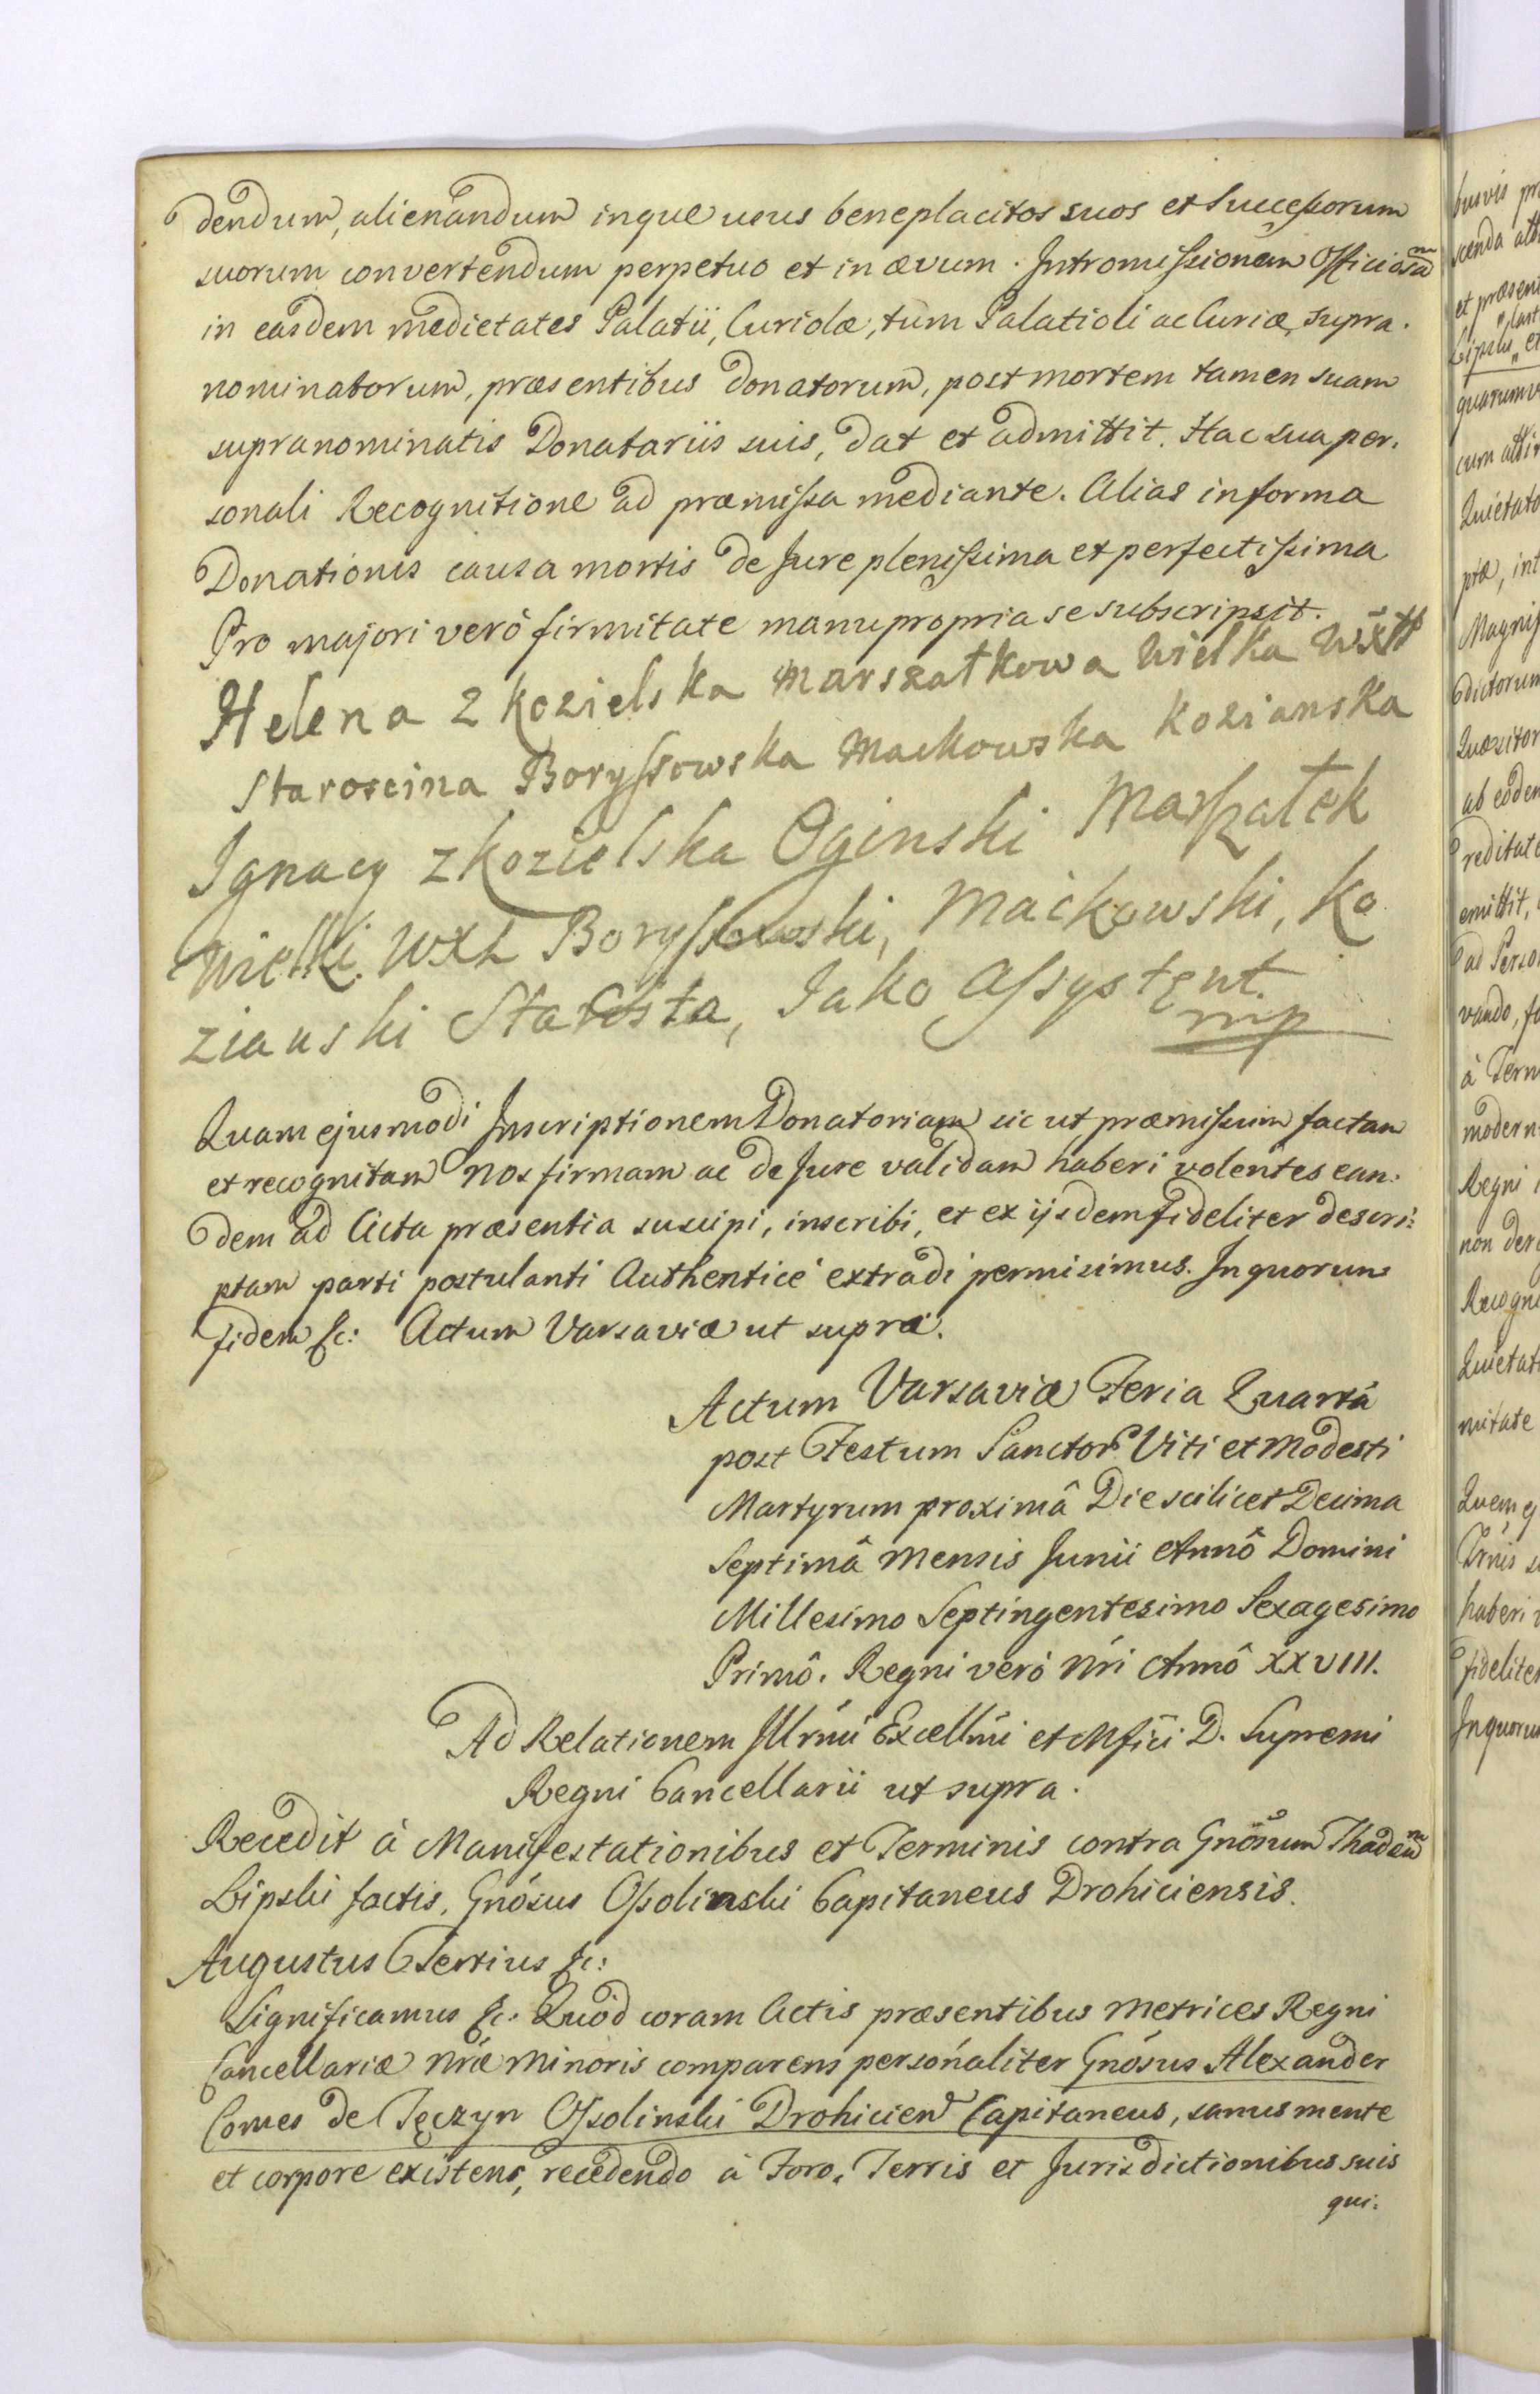 dendum, alienandum inque usus beneplacitos suos et Successorum
suorum convertendum perpetuo et in ævum. Intromissionem Officiosam
in easdem medietates Palatii, Curiolæ, tum Palatioli ac Curiæ, supra-
nominatorum, præsentibus donatorum, post mortem tamen suam
supranominatis Donatariis suis, dat et admittit. Hac sua per-
sonali Recognitione ad præmissa mediante. Alias in forma
Donationis causa mortis de Jure plenissima et perfectissima
Pro majori verò firmitate manu propria se subscripsit.
Helena z Kozielska Marszałkowa Wielka WXL
Staroscina Boryssowska Mackowska Kozianska
Ignacy z Kozielska Oginski Marszałek
Wielki WXL Boryssowski, Maickowski, Ko
zianski Starosta, Jako Assystent.
mp
Quam ejusmodi Inscriptionem Donatoriam sic ut præmissum factam
et recognitam Nos firmam ac de Jure validam haberi volentes ean-
dem ad Acta præsentia suscipi, inscribi, et ex ijsdem fideliter descri-
ptam parti postulanti Authenticè extradi permisimus. In quorum
fidem &c: Actum Varsaviæ ut supra.
Actum Varsaviæ Feria Quartâ
post Festum Sanctor Viti et Modesti
Martyrum proximâ Die scilicet Decima
Septimâ Mensis Junii Annô Domini
Millesimo Septingentesimo Sexagesimo
Primô. Regni verò Nri Annô XXVIII.
Ad Relationem Illrmi Excellmi et Mfici D. Supremi
Regni Cancellarii ut supra.
Recedit à Manifestationibus et Terminis contra Gnosum Thadæum
Lipski factis, Gnosus Ossolinski Capitaneus Drohiciensis.
Augustus Tertius &c:
Significamus &c. Quòd coram Actis præsentibus Metrices Regni
Cancellariæ Nræ Minoris comparens personaliter Gnosus Alexander
Comes de Tęczyn Ossolinski Drohicien Capitaneus, sanus mente
et corpore existens, recedendo à Foro, Terris et Jurisdictionibus suis
qui-